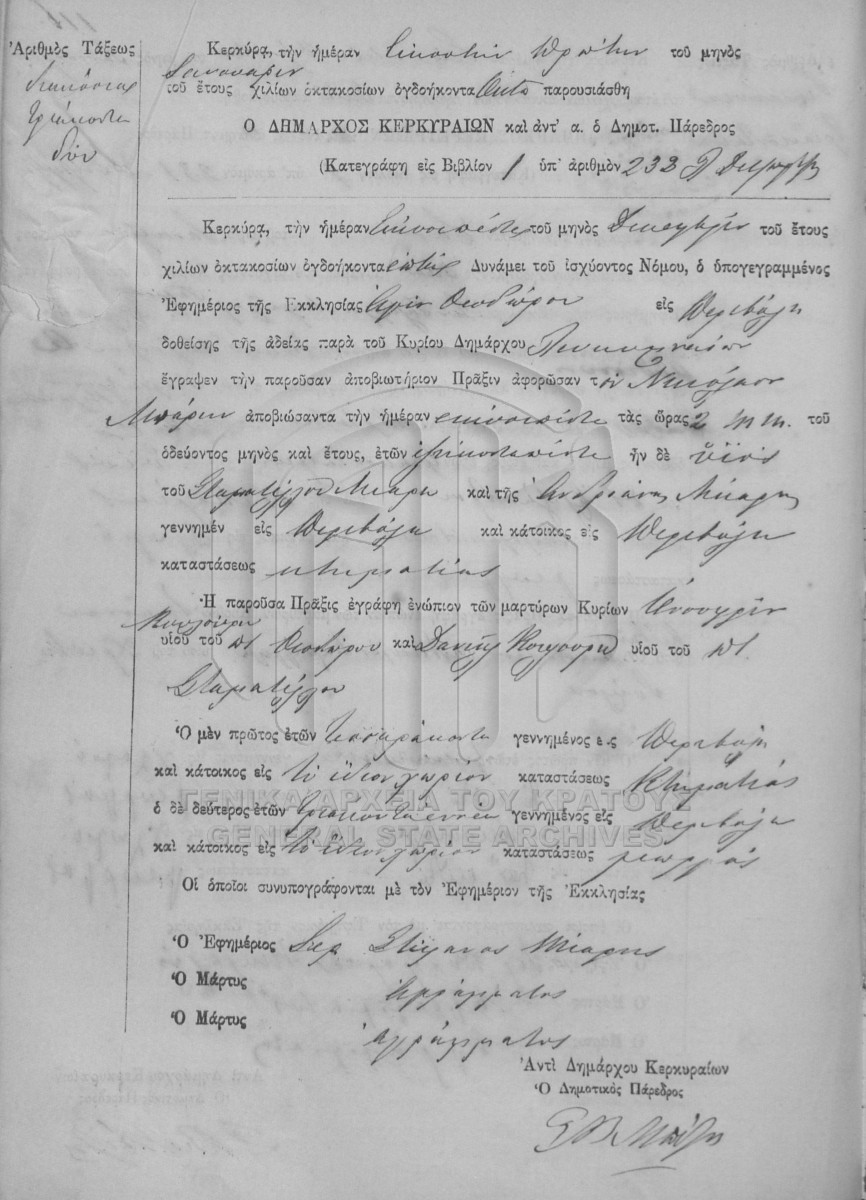 Ἀριθμὸς Τάξεως
διακόσια
τριάκοντα
δύο
Κερκύρᾳ, τὴν ἡμέραν Εἰκοστὴν πρώτην τοῦ μηνὸς
Ἰανουαρίου
τοῦ ἔτους χιλίων ὀκτακοσίων ὀγδοήκοντα Ὀκτὼ παρουσιάσθη
Ο ΔΗΜΑΡΧΟΣ ΚΕΡΚΥΡΑΙΩΝ καὶ ἀντ' α. ὁ Δημοτ. Πάρεδρος
(Κατεγράφη εἰς Βιβλίον 1 ὑπ' ἀριθμὸν 233
Κερκύρᾳ, τὴν ἡμέραν Εἰκοσιπέντε τοῦ μηνὸς Δεκεμβρίου τοῦ ἔτους
χιλίων ὀκτακοσίων ὀγδοήκοντα ἑπτὰ Δυνάμει τοῦ ἰσχύοντος Νόμου, ὁ ὑπογεγραμμένος
Ἐφημέριος τῆς Ἐκκλησίας Ἁγίου Θεοδώρου εἰς Περιβόλι
δοθείσης τῆς ἀδείας παρὰ τοῦ Κυρίου Δημάρχου Λευκιμμαίων
ἔγραψεν τὴν παροῦσαν ἀποβιωτήριον Πρᾶξιν ἀφορῶσαν τὸν Νικόλαον
Μπάρην ἀποβιώσαντα τὴν ἡμέραν εἰκοσιπέντε τὰς ὥρας 2 μ μ. τοῦ
ὁδεύοντος μηνὸς καὶ ἔτους, ἐτῶν ἑξηκονταπέντε ἦν δὲ υἱὸς
τοῦ Σταματέλλου Μπάρη καὶ τῆς Ἀνδριάνας Μπάρη
γεννημέν εἰς Περιβόλι καὶ κάτοικος εἰς Περιβόλι
καταστάσεως κτηματίας
Ἡ παροῦσα Πρᾶξις ἐγράφη ἐνώπιον τῶν μαρτύρων Κυρίων
Κουλούρη
υἱοῦ τοῦ πτ Θεοδώρου καὶ Δανιὴλ Κουλούρη υἱοῦ τοῦ πτ
Σταματέλλου
Ὁ μὲν πρῶτος ἐτῶν τεσσαράκοντα γεννημένος εἰς Περιβόλι
καὶ κάτοικος εἰς τὸ ἴδιον χωρίον καταστάσεως Κτηματίας
ὁ δὲ δεύτερος ἐτῶν τριακονταεννέα γεννημένος εἰς Περιβόλι
καὶ κάτοικος εἰς τὸ ἴδιον χωρίον καταστάσεως γεωργός
Οἱ ὁποῖοι συνυπογράφονται μὲ τὸν Ἐφημέριον τῆς Ἐκκλησίας
Ὁ Ἐφημέριος Ἱερ Στέφανος Μπάρης
Ὁ Μάρτυς ἀγράμματος
Ὁ Μάρτυς ἀγράμματος
Ἀντὶ Δημάρχου Κερκυραίων
Ὁ Δημοτικὸς Πάρεδρος
ΓΕΝΙΚΑ ΑΡΧΕΙΑ ΤΟΥ ΚΡΑΤΟΥΣ
GENERAL STATE ARCHIVES